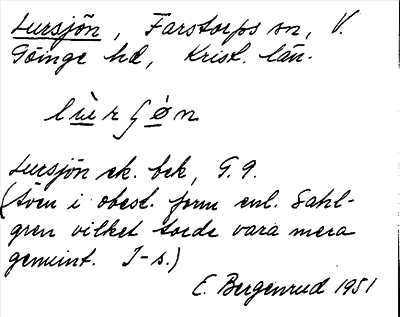 Lursjön, Farstorps sn, V.
Göinge hd, Krist. län.
lùrʃön
Lursjön ek. bek, G. 9.
(även i obest. form enl. Sahl-
gren vilket torde vara mera
genuint. I-s.)
E. Bergenrud 1951